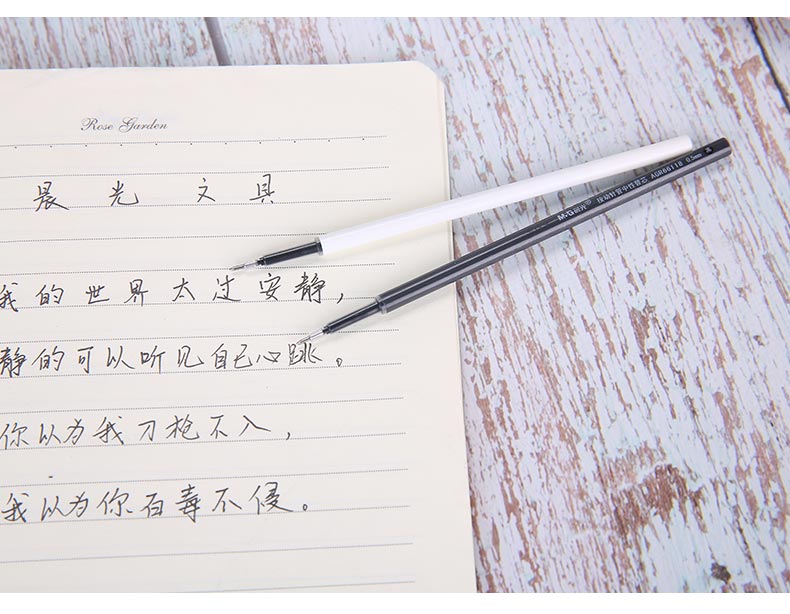 Rose Garden
晨光文具
我的世界太过安静,
静的可以听见自己心跳。
你以为我刀枪不入,
我以为你百毒不侵。
M&G晨光 按动针管中性替芯 AGR66118 0.5mm 黑